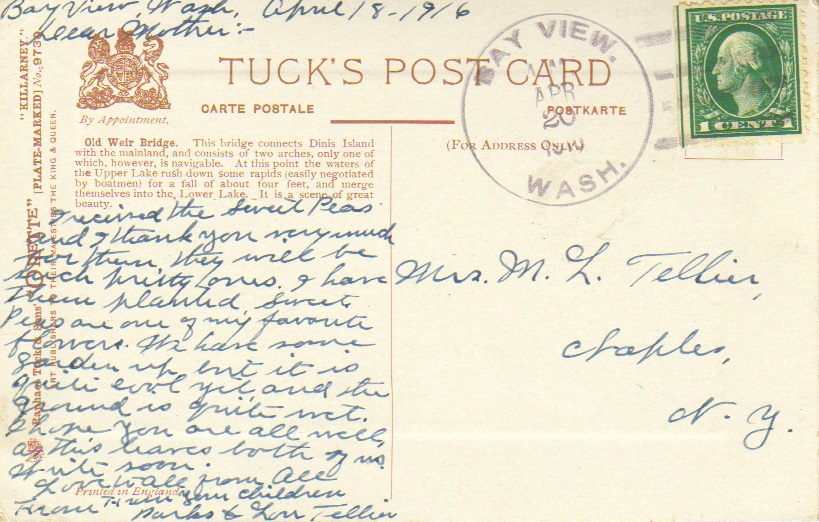 Bay View, Wash, April 18-1916
Dear Mother:-
TUCK'S POST CARD
CARTE POSTALE
POSTKARTE
By Appointment.
(FOR ADDRESS ONLY)
Old Weir Bridge. This bridge connects Dinis Island
with the mainland, and consists of two arches, only one of
which, however, is navigable. At this point the waters of
the Upper Lake rush down some rapids (easily negotiated
by boatmen) for a fall of about four feet, and merge
themselves into the Lower Lake. It is a scene of great
beauty.
I received the Sweet Peas
and I thank you very much
for them they will be
such pretty ones. I have
them planted Sweet
Peas are one of my favorite
flowers. We have some
garden up but it is
quite cool yet and the
ground is quite wet.
I hope you are all well
as this leaves both of us.
Write soon.
Love to all from All
From your children
Parks & Lou Tellier
Printed in England
"KILLARNEY."
[PLATE-MARKED] No. 9739
Raphael Tuck & Sons' "OILETTE"
ART PUBLISHERS TO THEIR MAJESTIES THE KING & QUEEN.
BAY VIEW.
APR
20
WASH.
U.S. POSTAGE
1 CENT 1
Mrs. M. L. Tellier,
Naples,
N. Y.